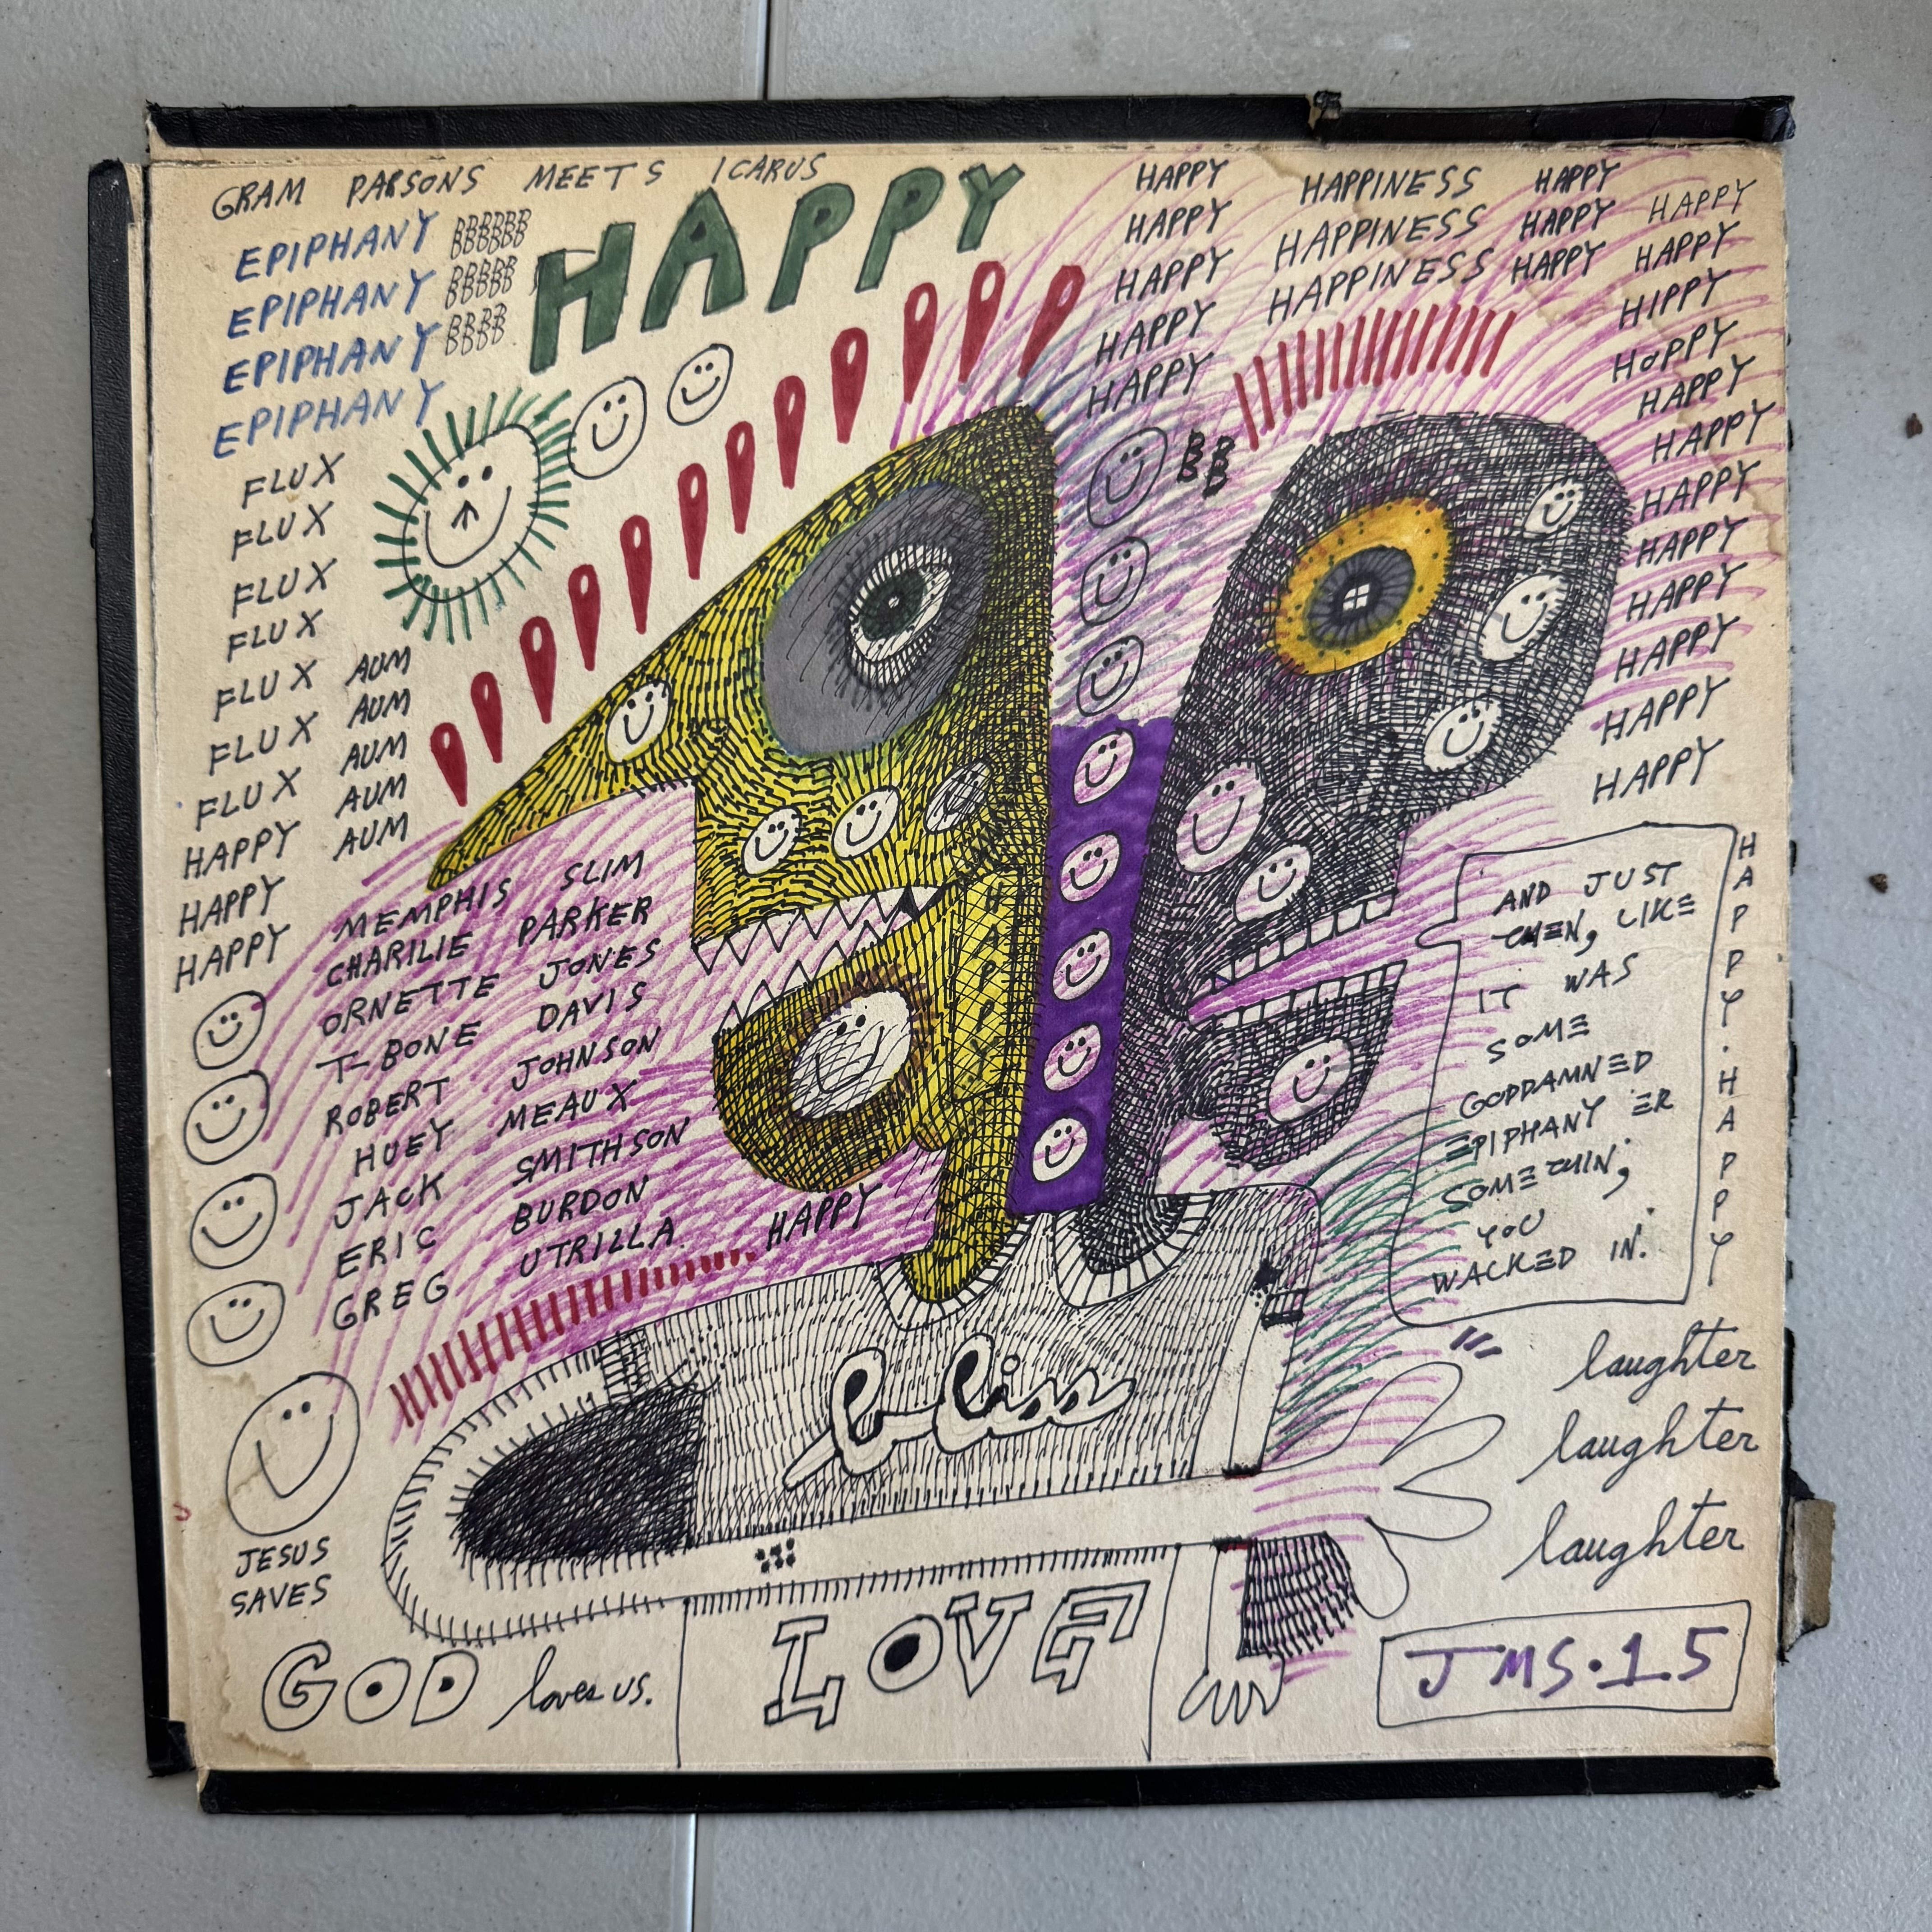 GRAM PARSONS MEETS ICARUS
HAPPY
EPIPHANY BBBBBB
BBBBBB
EPIPHANY BBBBB
BBBBB
EPIPHANY BBBB
BBBB
EPIPHANY
FLUX
FLUX
FLUX
FLUX
FLUX AUM
FLUX AUM
FLUX AUM
HAPPY AUM
HAPPY AUM
HAPPY
HAPPY HAPPINESS HAPPY HAPPY
HAPPY HAPPINESS HAPPY HAPPY
HAPPY HAPPINESS HAPPY HIPPY
HAPPY HOPPY
HAPPY HAPPY
BB
BB
HAPPY
HAPPY
HAPPY
HAPPY
HAPPY
HAPPY
HAPPY
MEMPHIS SLIM
CHARILIE PARKER
ORNETTE JONES
T-BONE DAVIS
ROBERT JOHNSON
HUEY MEAUX
JACK SMITHSON
ERIC BURDON
GREG UTRILLA
HAPPY
HAPPY
AND JUST
THEN, LIKE
IT WAS
SOME
GODDAMNED
EPIPHANY ER
SOMETHIN;
YOU
WACKED IN.
HAPPY.HAPPY
bliss
laughter
laughter
laughter
JESUS
SAVES
GOD loves us.
LOVE
JMS.15